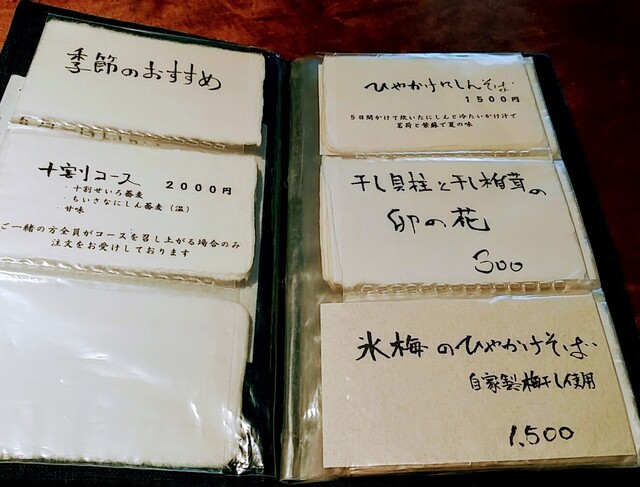 季節のおすすめ
十割コース 2000円
・十割せいろ蕎麦
・ちいさなにしん蕎麦（温）
甘味
ご一緒の方全員がコースを召し上がる場合のみ
注文をお受けしております
ひやかけにしんそば
1500円
５日間かけて炊いたにしんと冷たいかけ汁で
茗荷と紫蘇で夏の味
干し貝柱と干し椎茸の
卯の花
300
氷梅のひやかけそば
自家製梅干し使用
1,500